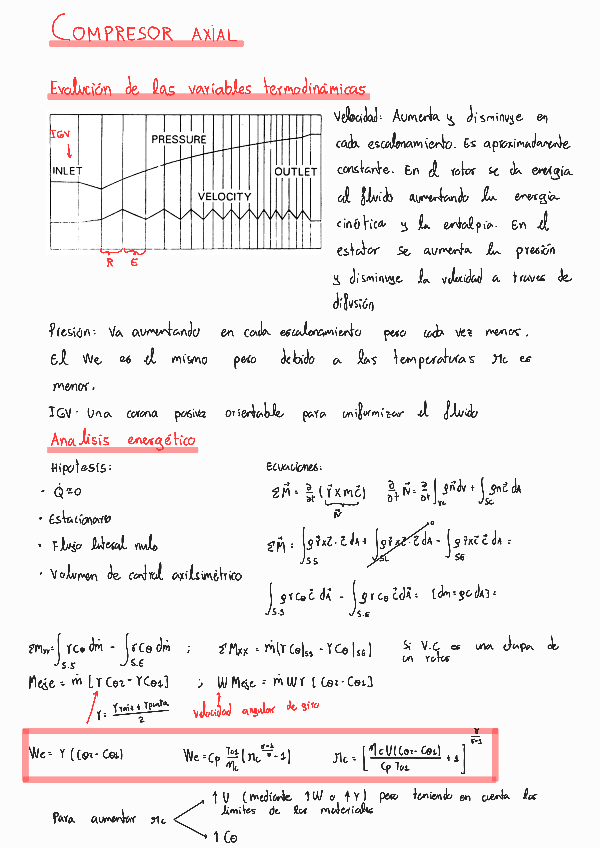 COMPRESOR AXIAL
Evolución de las variables termodinámicas
IGV
PRESSURE
INLET
OUTLET
VELOCITY
R E
Velocidad: Aumenta y disminuye en
cada escalonamiento. Es aproximadamente
constante. En el rotor se da energía
al fluido aumentando la energía
cinética y la entalpia. En el
estator se aumenta la presión
y disminuye la velocidad a traves de
difusión
Presión: Va aumentando en cada escalonamiento pero cada vez menos.
El We es el mismo pero debido a las temperaturas πc es
menor.
IGV: Una corona pasiva orientable para uniformizar el fluido
Analisis energético
Hipotesis:
· Q̇=0
· Estacionario
· Flujo lateral nulo
· Volumen de control axilsimétrico
Ecuaciones:
ΣM⃗ = ∂/∂t (r⃗ x mc⃗)
ΣMxx = ∫s.s rcθ dṁ - ∫s.E rcθ dṁ ; ΣMxx = ṁ[rcθ|ss - rcθ|sE] Si V.C es una etapa de
un rotor
Meje = ṁ [rcθ2 - rcθ1] ; WMeje = ṁ W r [cθ2 - cθ1]
r = (rraiz + rpunta)/2
velocidad angular de giro
Para aumentar πc
↑U (mediante ↑W o ↑r) pero teniendo en cuenta los
limites de los materiales
↑Cθ